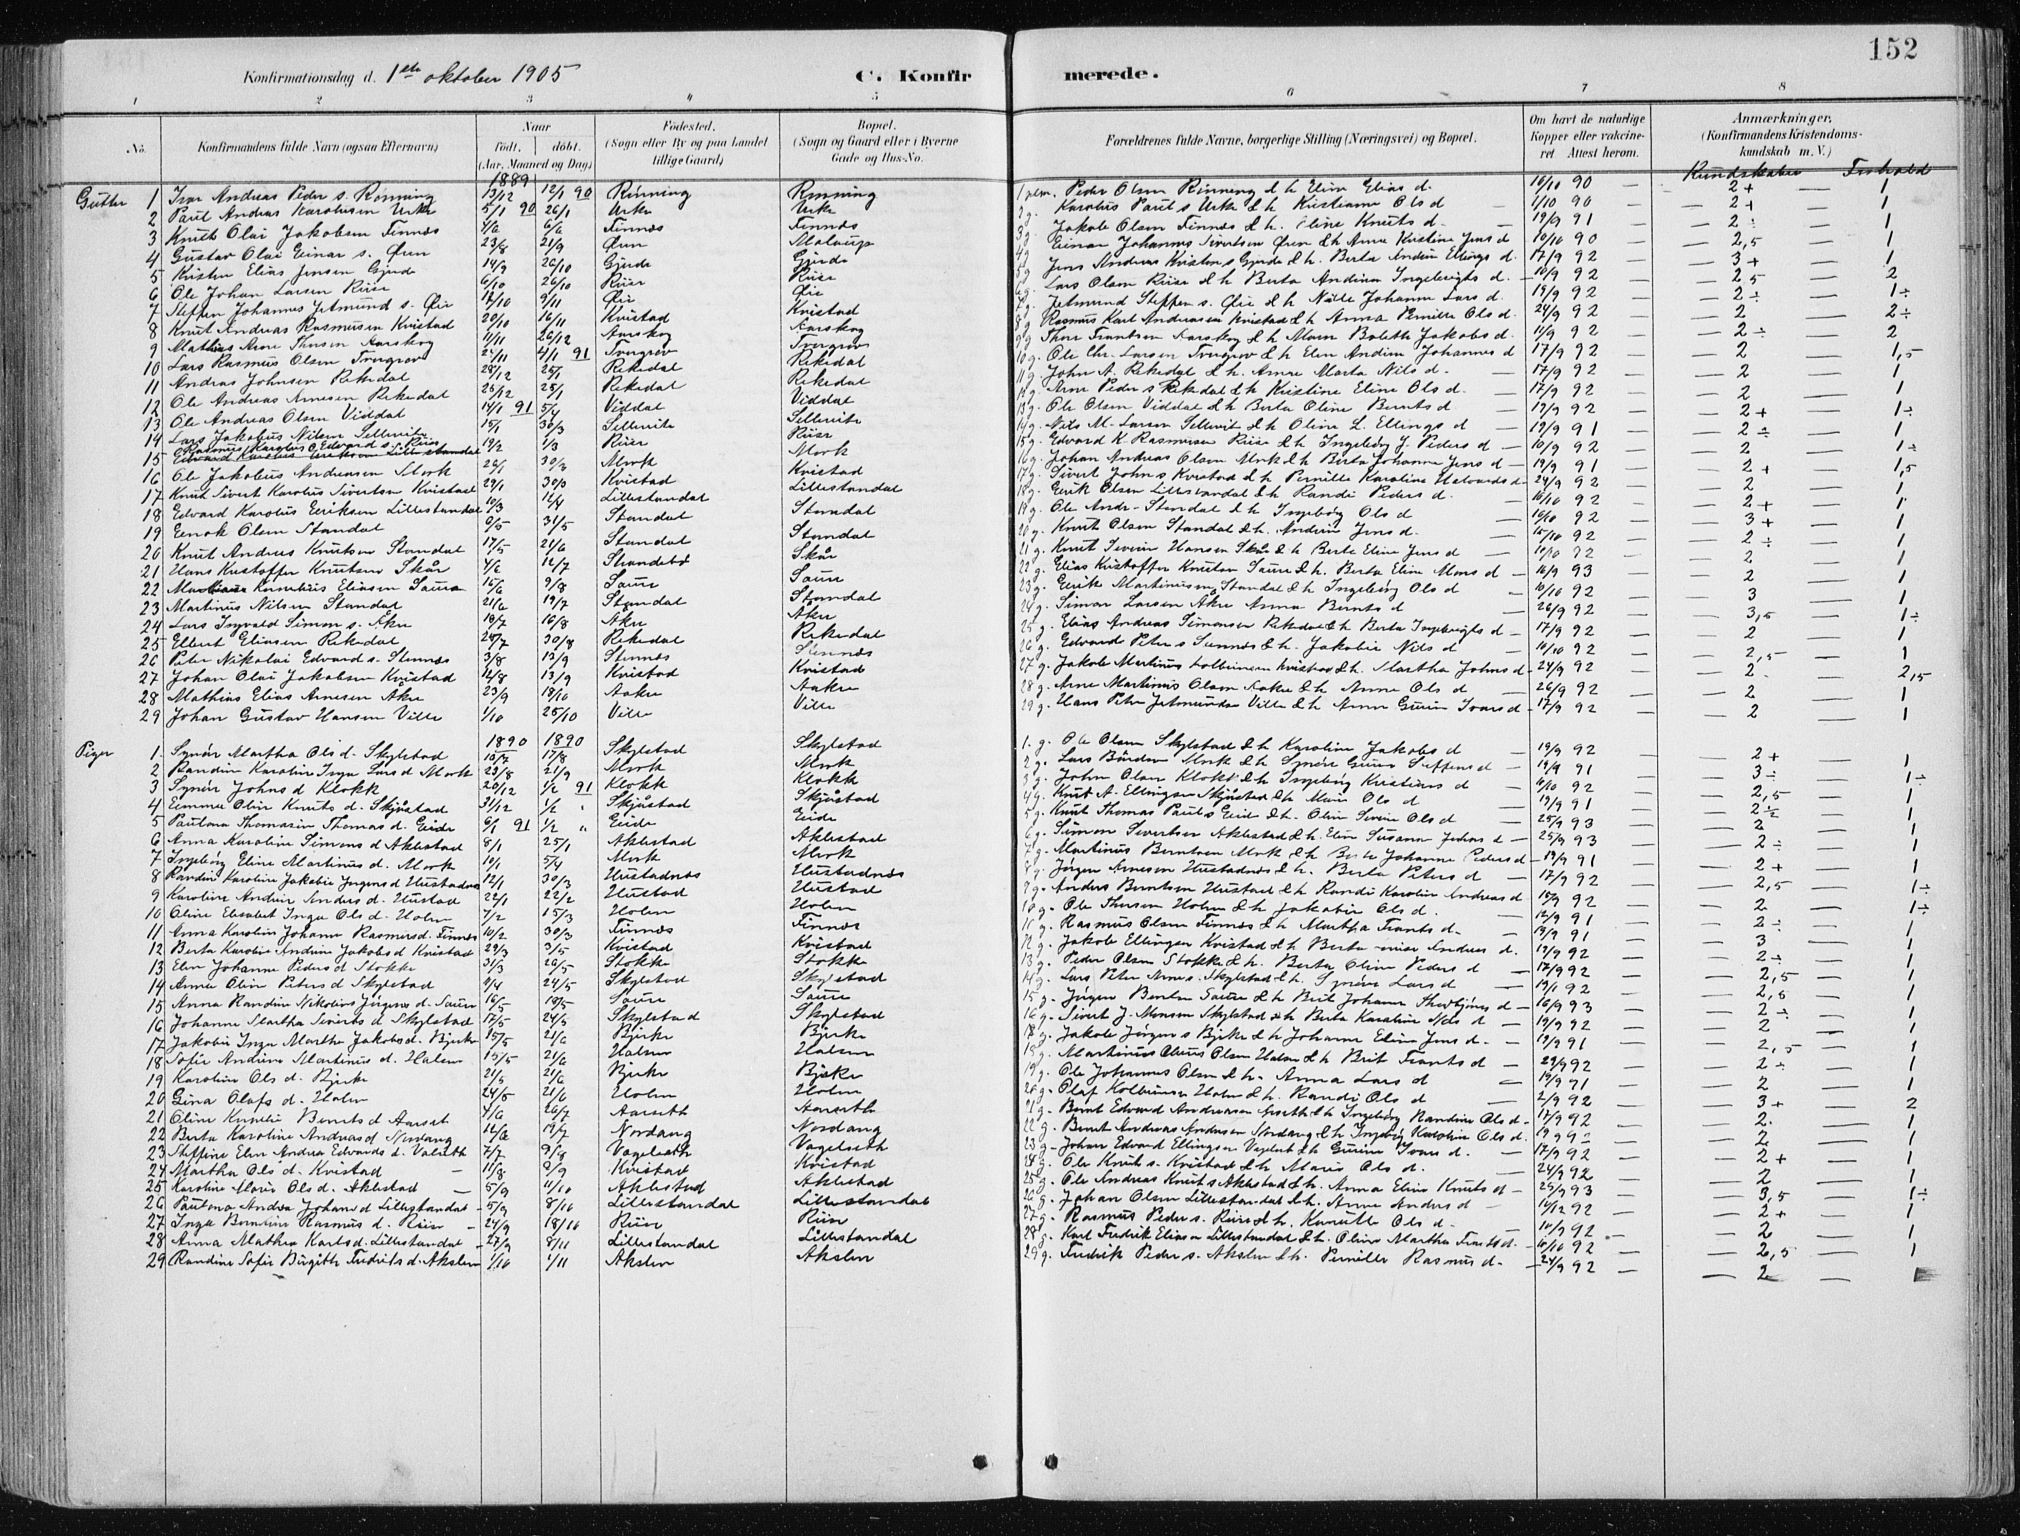 152
Konfirmationsdag d. 1ste oktober 1905 C. Konfirmerede.
1 2 3 4 5 6 7 8
No. Konfirmandens fulde Navn (ogsaa Efternavn) Naar født, døbt. (Aar, Maaned og Dag) Fødested. (Sogn eller By og paa Landet tillige Gaard) Bopæl. (Sogn og Gaard eller i Byerne Gade og Hus-No. Forældrenes fulde Navne, borgerlige Stilling (Næringsvei) og Bopæl. Om havt de naturlige Kopper eller vakcineret Attest herom. Anmærkninger, (Konfirmandens Kristendomskundskab m. V.)
Kundskaber Forhold
1889
Gutter 1 Ivar Andreas Peder s. Rønning 13/12 12/1 90 Rønning Rønning Peder Olsen Rønning & h. Eline Elias d. 16/10 90 — 2+ 1
2 Paul Andreas Karolusen Urke 5/1 90 26/1 Urke Urke 2 g. Karolus Paul s Urke & h Kristianne Ols d — 1/10 90 — 2+ — 1
3 Knut Olai Jakobsen Finnes 6/6 Finnes Finnes 3 g. Jakob Olsen Finnes & h. Eline Knuts d. — 19/9 91 — 2÷ — 1
4 Gustav Olai Einar s. Øren 23/8 21/9 Øren 4 g. Einar Johannes Sivertsen Øren & h Anne Kristine Jens d 10/10 90 — 2,5 — 1
5 Kristen Elias Jensen Gjerde 14/9 26/10 Gjerde Gjerde 5 g. Jens Andreas Kristen s Gjerde & h. Berta Andrine Ellings d. 17/9 92 — 3+ — 1
6 Ole Johan Larsen Riise 6/10 26/10 Riise Riise 6 g. Lars Olsen Riise & h Berta Andrina Ingebrigts d. 10/9 92 — 2,5 — 2
7 Steffen Johannes Jetmund s. Øie 9/11 Øie Øie 7 g. Jetmund Steffen s. Øie & h Johanne Lars d. 19/9 92 — 2÷ — 1÷
8 Knut Andreas Rasmusen Kvistad 20/10 16/11 Kvistad Kvistad 8 g. Rasmus Karl Andreasen Kvistad & h Anna Pernille Ols d. 24/9 92 — 2 — 2÷
9 Mathias Arne Thorsen Aarskog 11/11 26/12 Aarskog Aarskog 9 g. Thore Frantsen Aarskog & h Maren Boleth Jakobs d. 11/9 92 — 2÷ — 2
10 Lars Rasmus Olsen Tvergrov 4/1 91 Tvergrov Tvergrov 10 g. Ole Chr. Larsen Tvergrov & h Elen Andrine Johannes d 17/9 92 — 2 — 1,5
11 Andreas Johnsen Rekedal 28/12 25/1 Rekedal Rekedal 11 g. John A. Rekedal & h. Anne Marta Nils d. — 17/9 92 — 2 — 1
12 Ole Andreas Arnesen Rekedal 26/12 25/1 Rekedal Rekedal Arne Peder s Rekedal & h Kristine Eline Ols d. — 17/9 92 — 2 — 1
13 Ole Andreas Olsen Viddal 14/1 91 5/4 Viddal Viddal 13 g. Ole Olsen Viddal & h Berta Oline Bernts d — 19/9 92 — 2+ — 1÷
14 Lars Jakobus Nilsen Sellevite 15/1 30/3 Sellevite Sellevite 14 g. Nils M. Larsen Sellevit & h Oline L. Ellings d — 19/9 91 — 2÷ — 1
15 Rasmus Karolus Edvard s. Riise 19/2 1/3 Riise Riise 15 g. Edvard K Rasmusen Riise & h Ingebørg J. Peders d — 10/9 92 — 2 — 1÷
16 Ole Jakobus Andreasen Mork 26/1 30/3 Mork Mork 16 g. Johan Andreas Olsen Mork & h Berta Johanne Jens d — 19/9 91 — 2+ — 1,5
17 Knut Sivert Karolus Sivertsen Kvistad 29/1 30/3 Kvistad Kvistad 17 g. Sivert John s Kvistad & h Pernille Karoline Halvards d — 24/9 92 — 2 — 1
18 Edvard Karolus Eeriksen Lillestandal 10/3 Lillestandal Lillestandal 18 g. Eerik Olsen Lillestandal & h Randi Peders d. — 16/10 92 — 2+ — 1
19 Eenok Olsen Standal 9/5 31/5 Standal Standal 19 g. Ole Andr. Standal & h Ingebørg Ols d — 16/10 92 — 3+ — 1
20 Knut Andreas Knutsen Standal 17/5 21/6 Standal Standal 20 g. Knut Olsen Standal & h. Andrine Jens d. — 15/10 92 — 2÷ — 1
21 Hans Kristoffer Knutsen Skår 4/6 12/7 Skår 21 g. Knut Severin Hansen Skår & h Berte Eline Jens d — 10/10 92 — 2 — 1
22 Kornelius Eliasen Saure 16/6 9/8 Saure Saure 22 g. Elias Kristoffer Knutsen Saure & h. Berta Eline Mons d — 16/9 93 — 2 — 1
23 Martinus Nilsen Standal 21/6 19/7 Standal Standal 23 g. Eerik Martinusen Standal & h Ingebørg Ols d — 10/10 92 — 3 — 1
24 Lars Ingvald Simon s. Åkre 19/7 16/8 Åkre Åkre 24 g. Simon Larsen Åkre Anna Bernts d — 26/9 92 — 3,5 — 1÷
25 Elbert Eliasen Rekedal 28/7 30/8 Rekedal Rekedal 25 g. Elias Andreas Simonsen Rekedal & h Berta Ingebrigts d — 17/9 92 — 2 — 1
26 Peter Nikolai Edvard s. Stennes 3/8 13/9 Stennes 26 g. Edvard Peter s & h. Jakobie Nils d — 10/10 92 — 2,5 — 1
27 Johan Olai Jakobsen Kvistad 12/8 13/9 Kvistad Kvistad 27 g. Jakob Martinus Kolbeinsen Kvistad & h Martha Johns d — 24/9 92 — 2 — 2,5
28 Mathias Elias Arnesen Åkre 23/9 18/10 Aakre Aakre 28 g. Arne Martinus Olsen Aakre & h Anne Ols d — 26/9 92 — 2 — 1
29 Johan Gustav Hansen Ville 1/10 25/10 Ville Ville 29 g. Hans Peter Jetmundsen Ville & h Anna Gurine Ivars d — 17/9 92 — 2 — 1
1890 1890
Piger 1 Synøv Martha Ols d. Skylstad 15/7 17/8 Skylstad Skylstad 1. g. Ole Olsen Skylstad & h Karoline Jakobs d — 19/9 92 — 2+ — 1
2 Randine Karoline Inga Lars d Mork 23/8 21/9 Mork Mork 2 g. Lars Bårdsen Mork & h Synøv Gurine Steffens d — 19/9 91 — 3÷ — 1÷
3 Synøv Johns d Klokk 20/12 1/2 91 Klokk Klokk 3 g. John Olsen Klokk & h Ingebørg Kristians d — 10/10 92 — 2,5 — 1
4 Emma Oline Knuts d. Skjåstad 31/12 1/2 " Skjåstad Skjåstad 4 g. Knut A. Ellingsen Skjåstad & h Marie Ols d — 19/9 91 — 2÷ — 1
5 Paulona Thomasine Thomas d. Eide 6/1 91 1/2 " Eide Eide 5 g. Knut Thomas Paul s Eide & h. Oline Ols d — 25/9 93 — 2 — 1
6 Anna Karoline Simons d Aklestad 8/1 25/1 Aklestad Aklestad 6 g. Simon Sivertsen Aklestad & h. Elen Susanne d — 25/9 93 — 2÷ — 1
7 Ingebørg Eline Martinus d. Mork 19/1 5/4 Mork Mork 7 g. Martinus Berntsen Mork & h Berte Johanne Peders d — 19/9 91 — 2+ — 1
8 Randine Karoline Jakobie Jørgens d Hustadnes 12/1 30/3 Hustadnes Hustadnes 8 g. Jørgen Arnesen Hustadnes & h. Berta Peters d — 17/9 92 — 2,5 — 1÷
9 Karoline Andrine Anders d. Hustad 22/1 22/2 Hustad Hustad 9 g. Anders Berntsen Hustad & h Randi Karoline Andreas d 15/9 92 — 2 — 1÷
10 Oline Elisabet Inga Ols d. Holen 7/2 15/3 Holen Holen 10 g. Ole Thorsen Holen & h Jakobie Ols d. — 12/9 91 — 2÷ — 1
11 Anna Karoline Johanne Rasmus d. Finnes 10/2 30/3 Finnes Finnes 11 g. Rasmus Olsen Finnes & h Martha Frants d. — 19/9 91 — 3 — 1
12 Berta Karoline Andrine Jakobs d Kvistad 29/3 3/5 Kvistad Kvistad 12 g. Jakob Ellingsen Kvistad & h Berta Andreas d. 19/9 92 — 2÷ — 1
13 Elen Johanne Peders d Stokke 31/3 26/5 Stokke Stokke 13 g. Peder Olsen Stokke & h. Berta Oline Peders d — 17/9 92 — 2,5 — 1
14 Anne Oline Peters d Skylstad 24/5 Skylstad Skylstad 14 g. Lars Peter Arne s. Skylstad & h Synøve Lars d — 92 — 2,5 — 1
15 Anna Randine Nikoline Jørgens d. Saure 16/5 Saure Saure 15 g. Jørgen Bentsen Saure & h Brit Johanne d — 16/9 93 — 2÷ — 1
16 Johanne Martha Siverts d Skylstad 17/5 24/5 Skylstad Skylstad 16 g. Sivert J. Monsen Skylstad & h Berta Karoline Nils d — 19/9 92 — 2 — 1
17 Jakobie Inga Martha Jakobs d. Bjerke 15/5 21/6 Bjerke Bjerke Jakob Jørgen s Bjerke & h Johanne Eline Jens d. — 19/9 91 — 2,5 — 1
18 Sofie Andrine Martinus d. Holen 15/5 21/6 Holen Holen Martinus Claus Olsen Holen & h Brit Frants d — 29/9 92 — 2÷ — 1
19 Karoline Ols d. Bjerke 21/5 21/6 Bjerke Bjerke 19 g. Ole Johannes Olsen & h. Anna Lars d — 19/9 91 — 2 — 1
20 Gina Olafs d. Holen 24/5 21/6 Holen Holen 20 g. Olaf Kolbeinsen Holen & h. Randi Ols d — 2/9 92 — 3+ — 2
21 Oline Kornelie Bernts d Aarset 4/6 26/7 Aarseth Aarseth 21 g. Bernt Edvard Andreasen & h Ingebørg Randine Ols d — 17/9 92 — 2 — 1
22 Berta Karoline Andreas d Nordang 14/6 19/7 Nordang Nordang 22 g. Bernt Andreas Andersen Nordang & h Ingebørg Karoline Ols d. — 2 — 1
23 Steffine Elen Andrea Edvards d. Valseth 7/7 9/8 Vagelseth Vagelseth 23 g. Johan Edvard Ellingsen & h Gurine Ivars d. — 17/9 92 — 2+ — 1
24 Martha Ols d. Kvistad 11/8 9/9 Kvistad Kvistad 24 g. Ole Knut s. Kvistad & h Marie Ols d. — 24/9 92 — 2 — 1
25 Karoline Marie Ols d. Aklestad — 5/9 11/10 Aklestad Aklestad 25 g. Ole Andreas Knut s Aklestad & h. Anna Eline Knuts d — 25/9 93 — 3,5 — 1÷
26 Paulona Andrea Johans d Lillestandal 5/9 8/10 Lillestandal Lillestandal 26 g. Johan Olsen Lillestandal & h. Anne Anders d — 14/12 92 — 2+ — 1
27 Inga Berntine Rasmus d. Riise 24/9 18/10 Riise Riise 27 g. Rasmus Peder s. Riise & h. Karnette Ols d. — 10/9 92 — 2 — 1
28 Anna Mathea Karls d. Lillestandal 27/9 8/11 Lillestandal Lillestandal 28 g. Karl Fredrik Eliasen Lillestandal & h. Oline Martha Frants d. — 10/10 92 — 2,5 — 1
29 Randine Sofie Birgitte Fredriks d. Akslen 1/10 1/11 Akslen Akslen 29 g. Fredrik Peder s. Akslen & h. Pernille Rasmus d. — 24/9 92 — 2 —